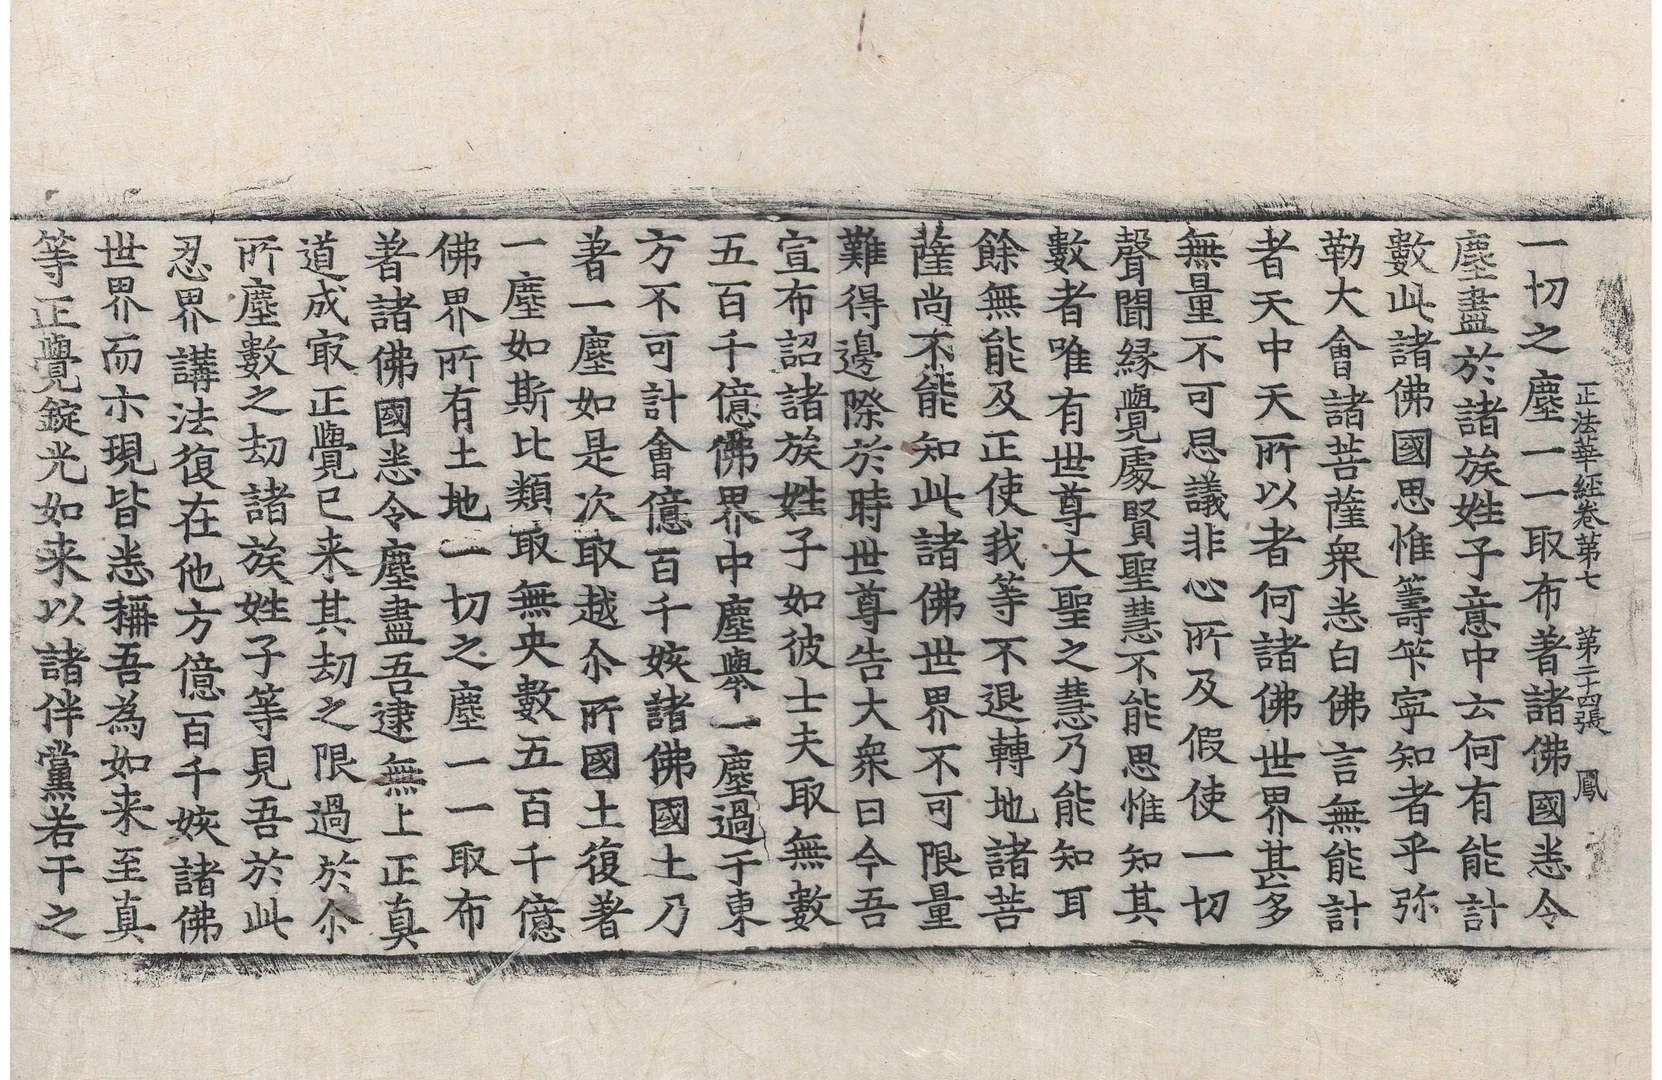 正法華經卷第七　第二十四張　鳳
一切之塵一一取布著諸佛國悉令
塵盡於諸族姓子意中云何有能計
數此諸佛國思惟籌筭寧知者乎弥
勒大會諸菩薩衆悉白佛言無能計
者天中天所以者何諸佛世界甚多
無量不可思議非心所及假使一切
聲聞緣覺處賢聖慧不能思惟知其
數者唯有世尊大聖之慧乃能知耳
餘無能及正使我等不退轉地諸菩
薩尚不能知此諸佛世界不可限量
難得邊際於時世尊告大衆曰今吾
宣布詔諸族姓子如彼士夫取無數
五百千億佛界中塵舉一塵過于東
方不可計會億百千姟諸佛國土乃
著一塵如是次取越尒所國土復著
一塵如斯比類取無央數五百千億
佛界所有土地一切之塵一一取布
著諸佛國悉令塵盡吾逮無上正真
道成㝡正覺已来其劫之限過於尒
所塵數之劫諸族姓子等見吾於此
忍界講法復在他方億百千姟諸佛
世界而示現皆悉稱吾為如来至真
等正覺錠光如来以諸伴黨若干之